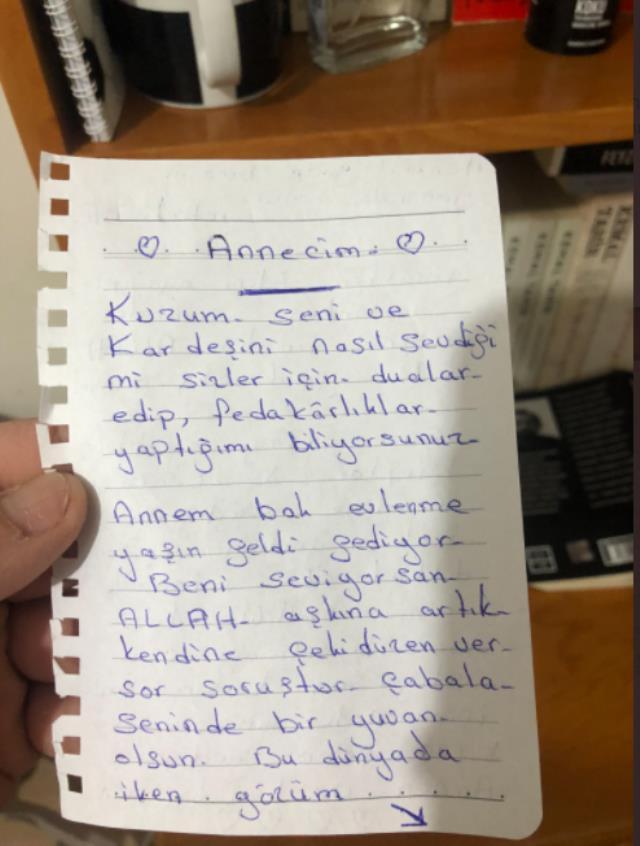 KOKU
♡ Annecim. ♡
Kuzum. seni ve
Kardeşini nasıl sevdiği
mi sizler için. dualar-
edip, fedakârlıklar-
yaptığımı biliyorsunuz-
Annem bak evlenme
yaşın geldi gediyor-
Beni seviyorsan-
ALLAH- aşkına artık-
kendine çekidüzen ver-
sor soruştur- çabala-
seninde bir yuvan-
olsun. Bu dünyada
iken. gözüm . . . . .
KEMAL
TAHİR